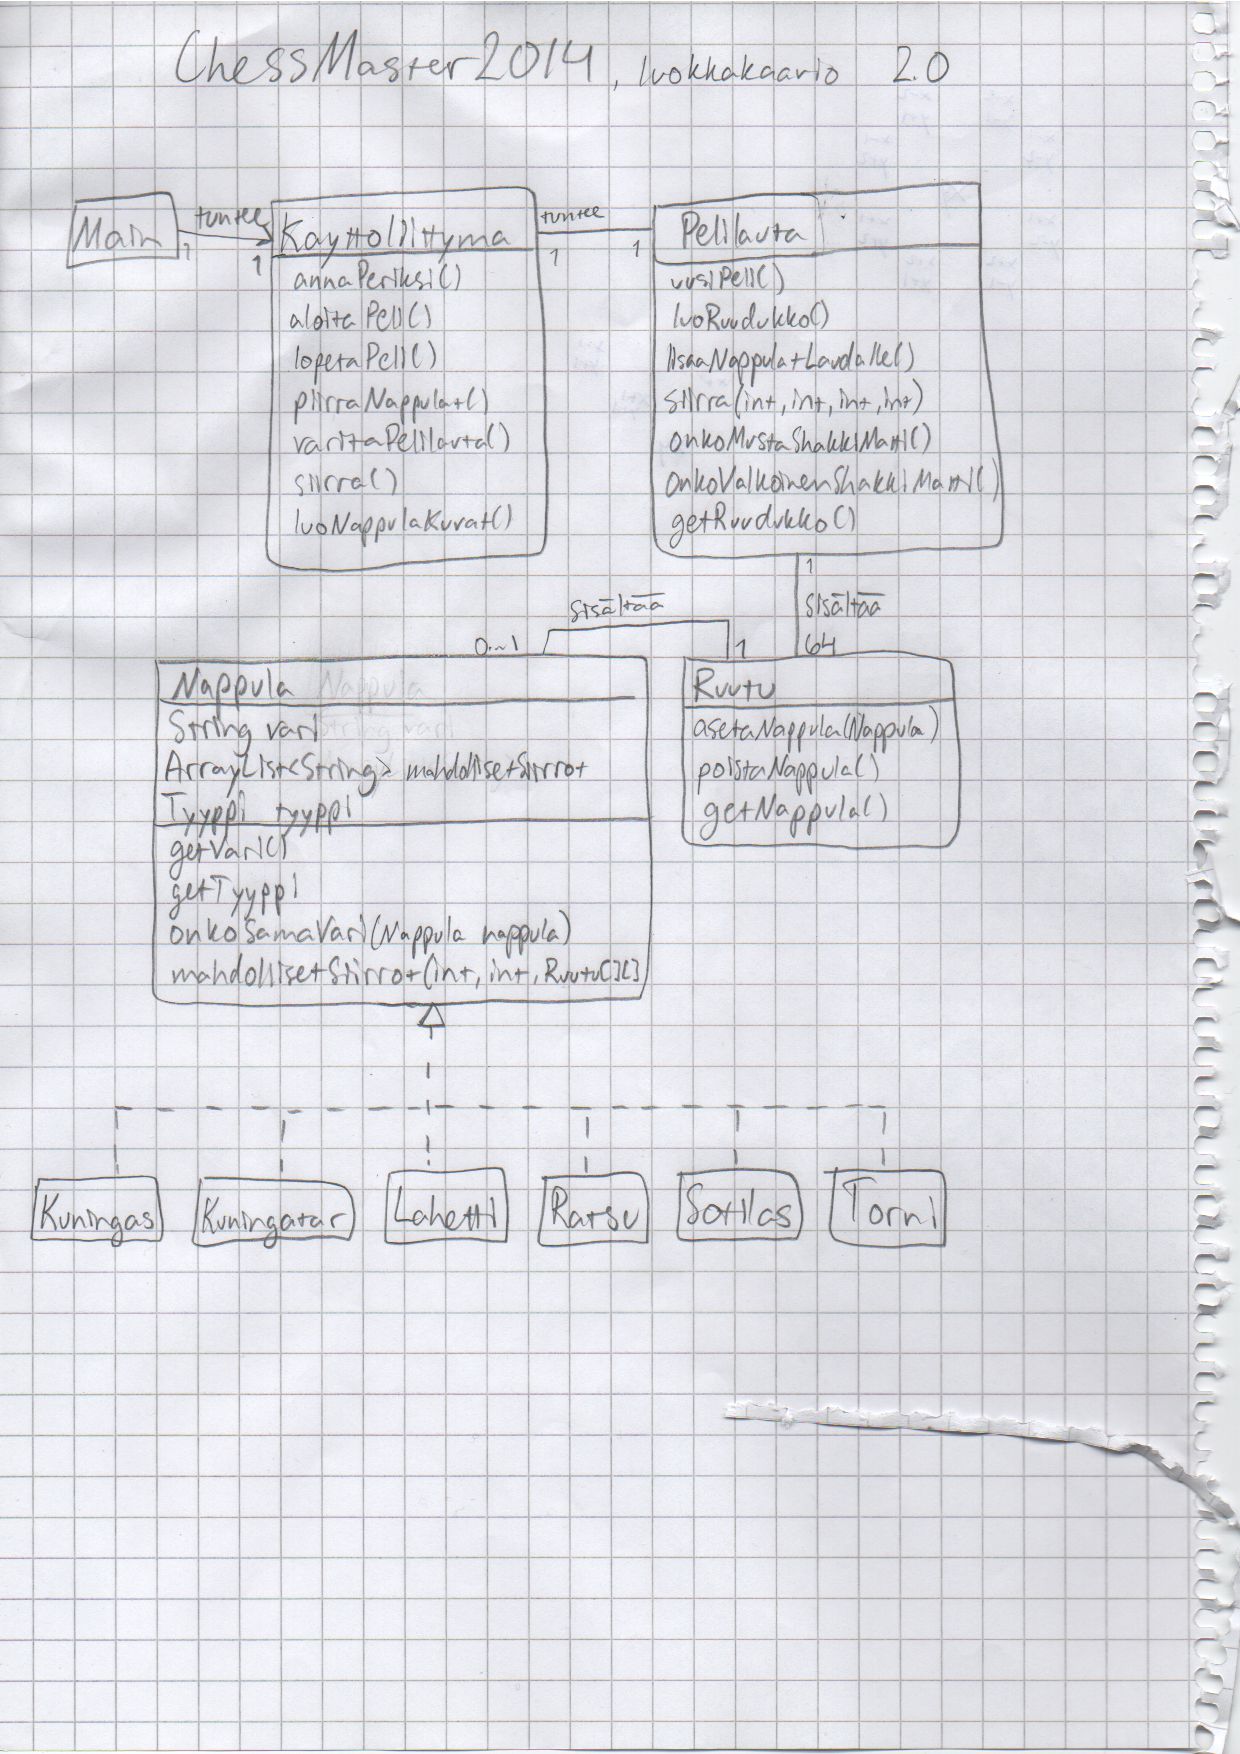 ChessMaster2014, luokkakaavio 2.0
Main
tuntee
1
1
KayttoLiittyma
annaPeriksi()
aloitaPeli()
lopetaPeli()
piirraNappulat()
varitaPelilauta()
siirra()
luoNappulaKuvat()
tuntee
1
1
Pelilauta
uusiPeli()
luoRuudukko()
lisaaNappulatLaudalle()
siirra(int, int, int, int)
onkoMustaShakkiMatti()
onkoValkoinenShakkiMatti()
getRuudukko()
1
sisältää
64
sisältää
0..1
1
Nappula
String vari
ArrayList<String> mahdollisetSiirrot
Tyyppi tyyppi
getVari()
getTyyppi
onkoSamaVari(Nappula nappula)
mahdollisetSiirrot(int, int, Ruutu[][]
Ruutu
asetaNappula(Nappula)
poistaNappula()
getNappula()
Kuningas
Kuningatar
Lahetti
Ratsu
Sotilas
Torni